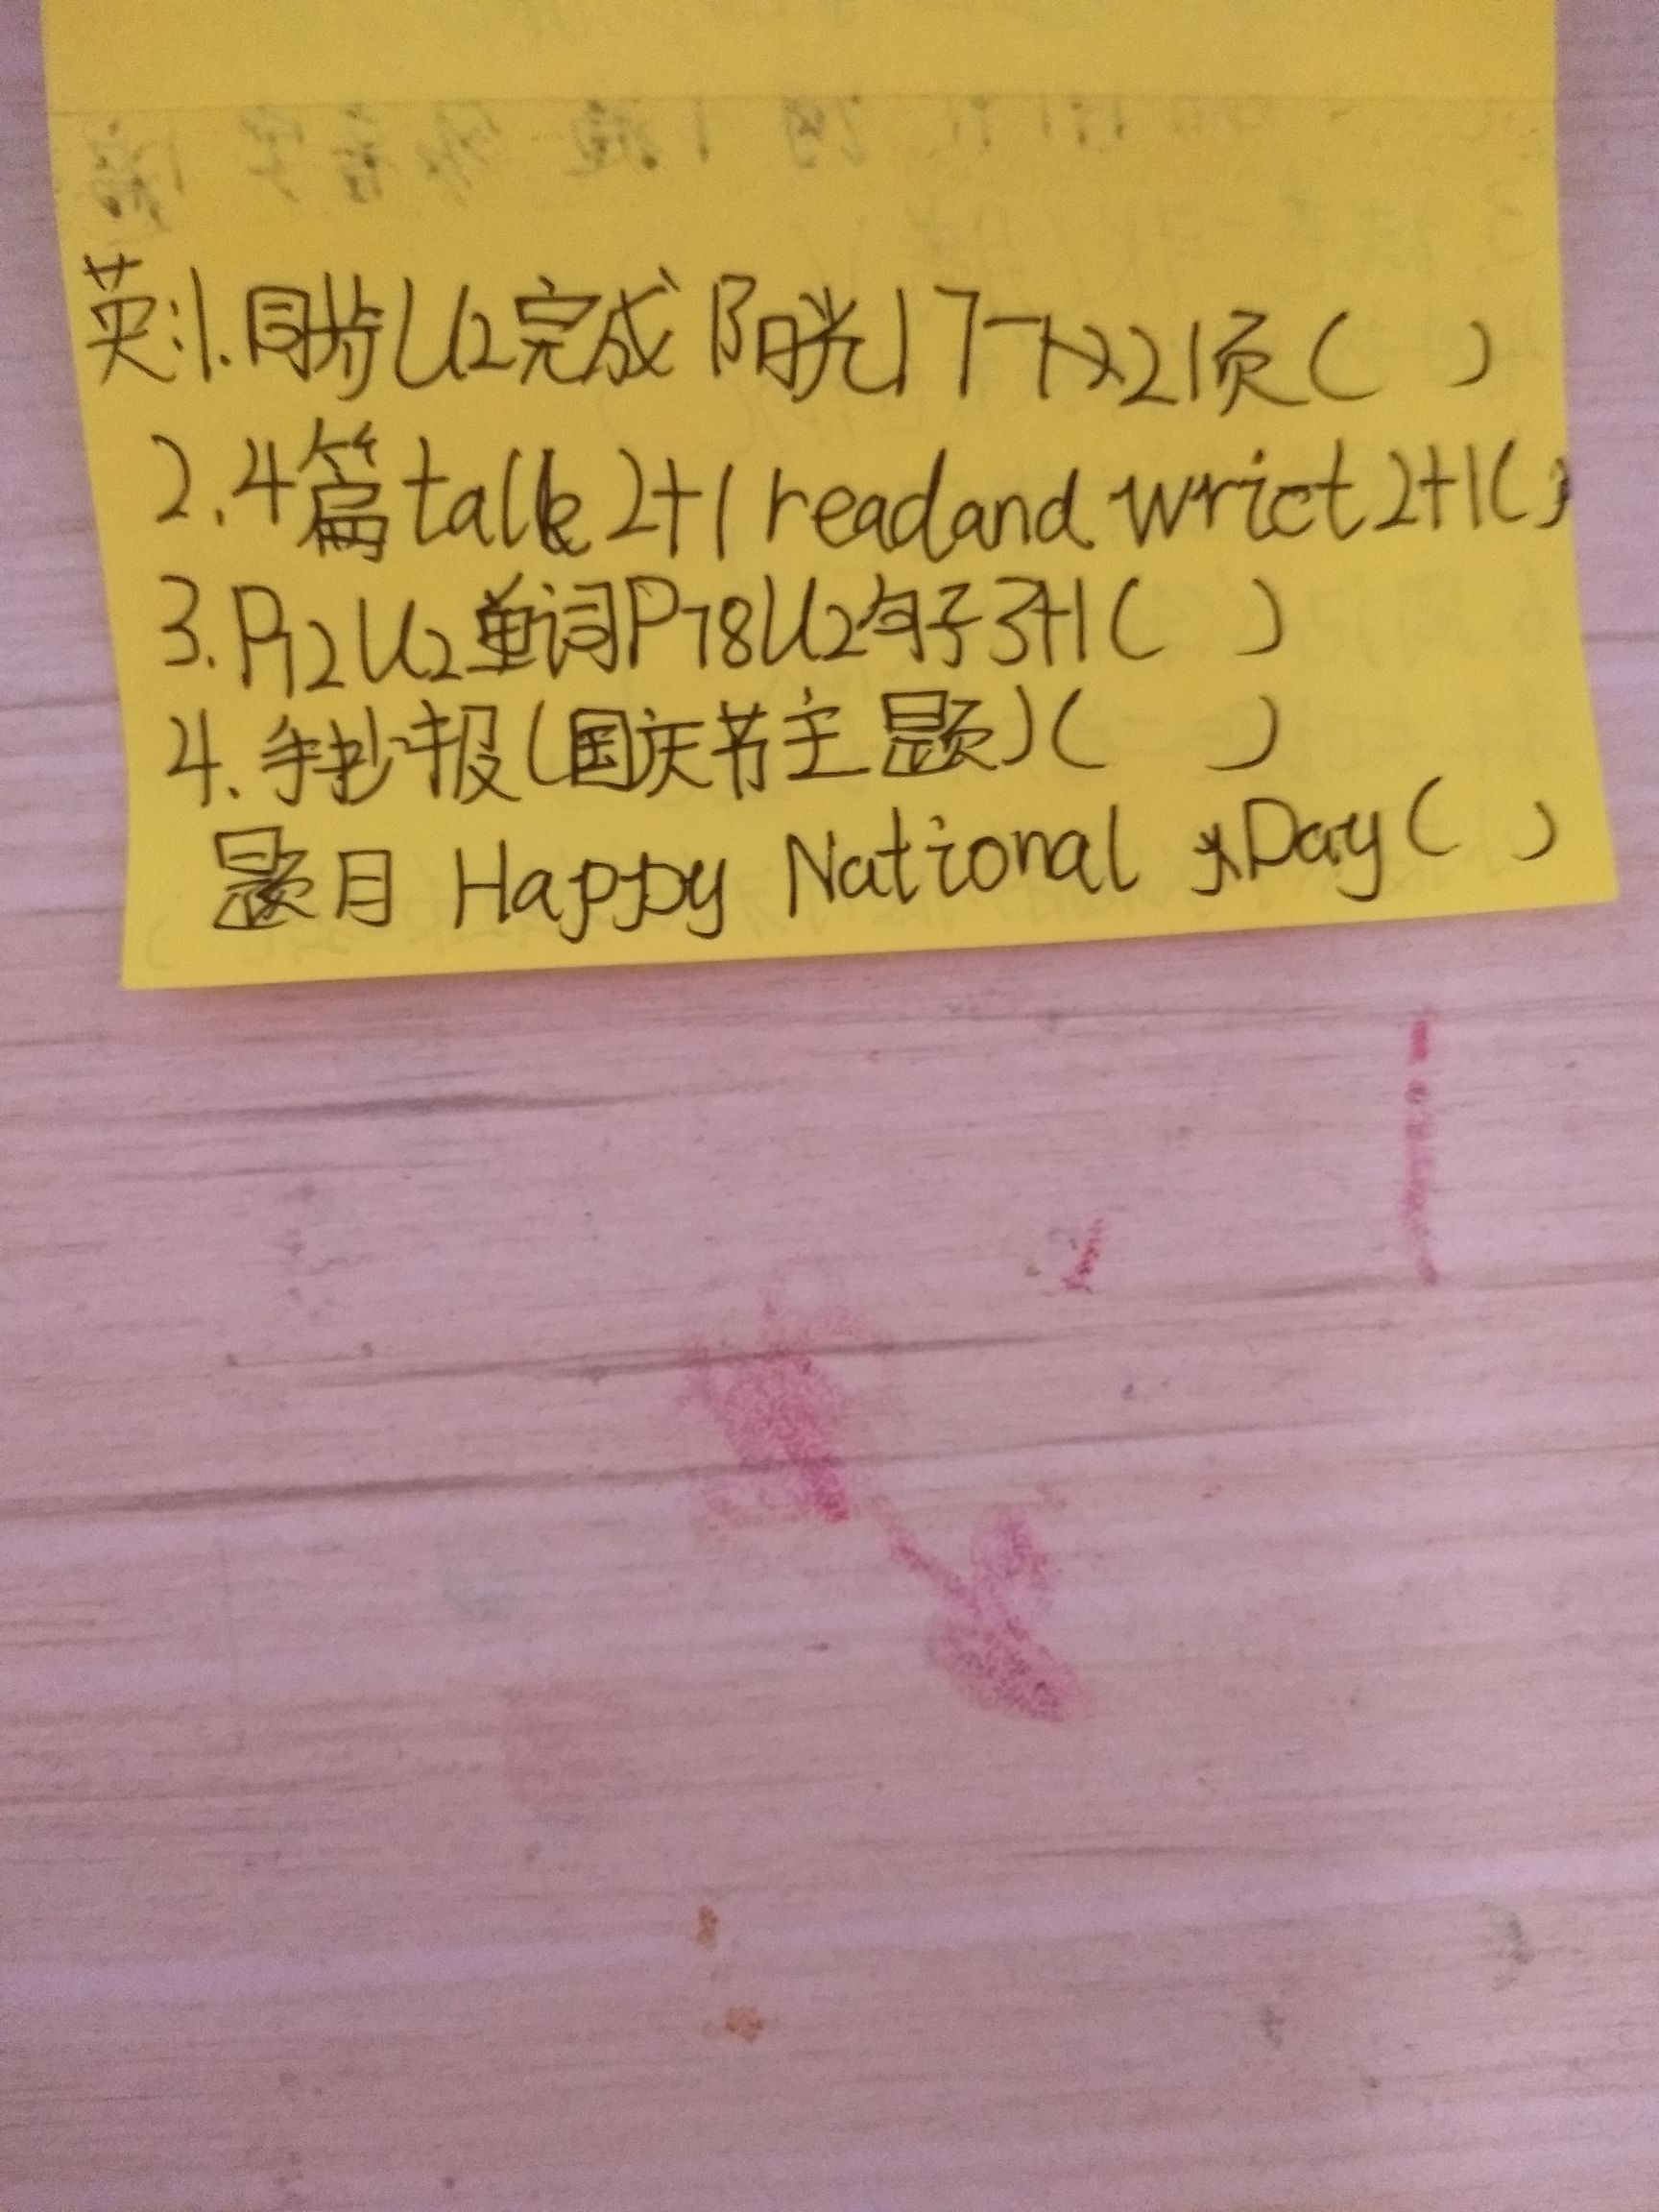 英:1.同步U2完成 阳光17-21页( )
2.4篇talk 2+1 read and wrict 2+1( )
3.P72U2单词P78U2句子3+1( )
4.手抄报(国庆节主题)( )
题目 Happy National Day( )